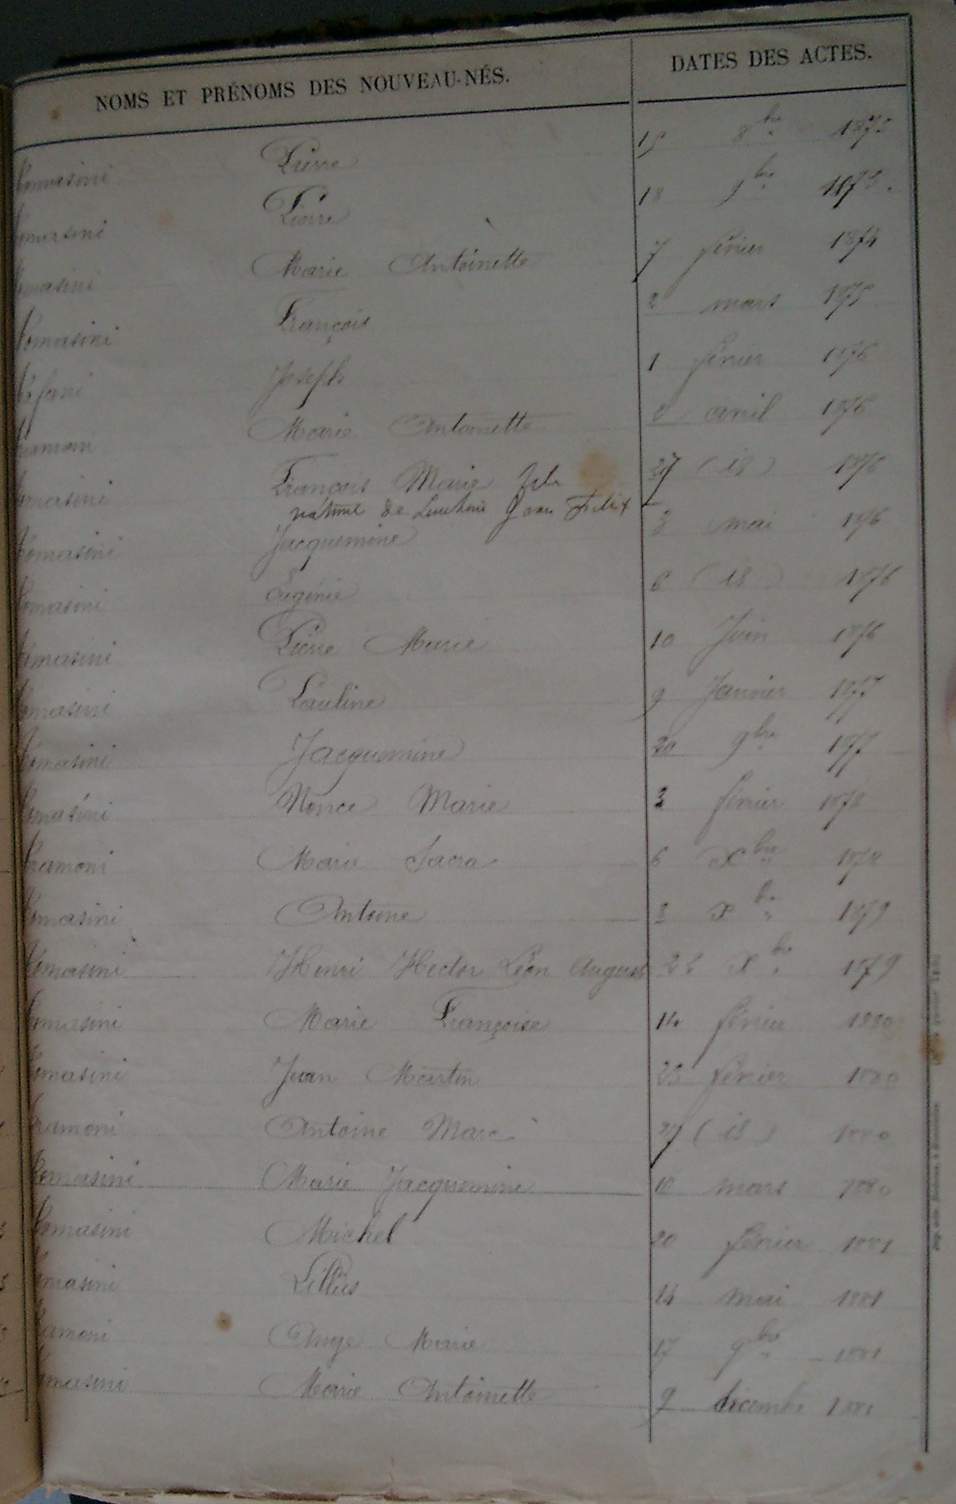 NOMS ET PRÉNOMS DES NOUVEAU-NÉS. DATES DES ACTES.
Tomasini Pierre 15 8bre 1873
Tomasini Pierre 18 9bre 1873.
Tomasini Marie Antoinette 7 février 1874
Tomasini François 2 mars 1875
Joseph 1 février 1876
Tramoni Marie Antoinette avril 1876
Tomasini François Marie fils 27 (id) 1876
naturel de Jean Félix
Tomasini Jacquemine 3 mai 1876
Tomasini Eugénie 6 (id) 1876
Tomasini Pierre Marie 10 Juin 1876
Tomasini Pauline 9 Janvier 1877
Tomasini Jacquemine 20 9bre 1877
Tomasini Nonce Marie 3 février 1878
Tramoni Marie Sacra 6 Xbre 1878
Tomasini Antoine Xbre 1879
Tomasini Henri Hector Léon August Xbre 1879
Tomasini Marie Françoise 14 février 1880
Tomasini Jean Martin 23 février 1880
Tramoni Antoine Marc 27 (id) 1880
Tomasini Marie Jacquemine 10 mars 1880
Tomasini Michel 20 février 1881
Tomasini 14 mai 1881
Tramoni Ange Marie 17 9bre 1881
Tomasini Marie Antoinette 9 décembre 1881